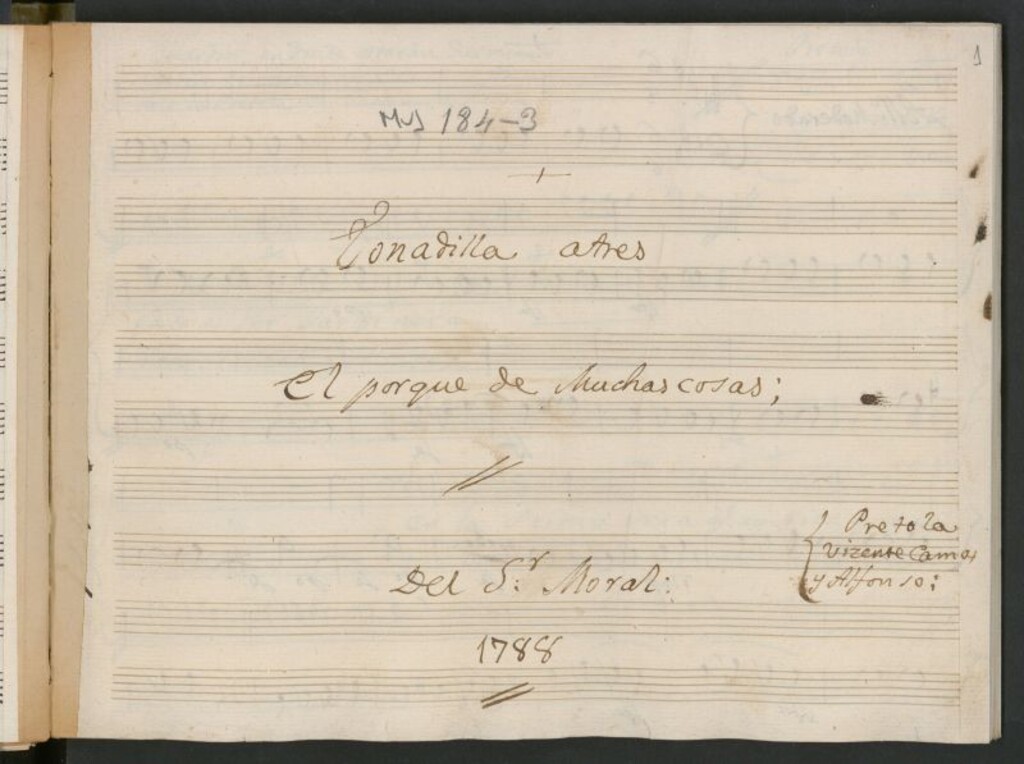 1
Mus 184-3
Tonadilla atres
El porque de Muchas cosas;
Pretola
Vizente Camas
y Alfonso;
Del S.r Moral:
1788